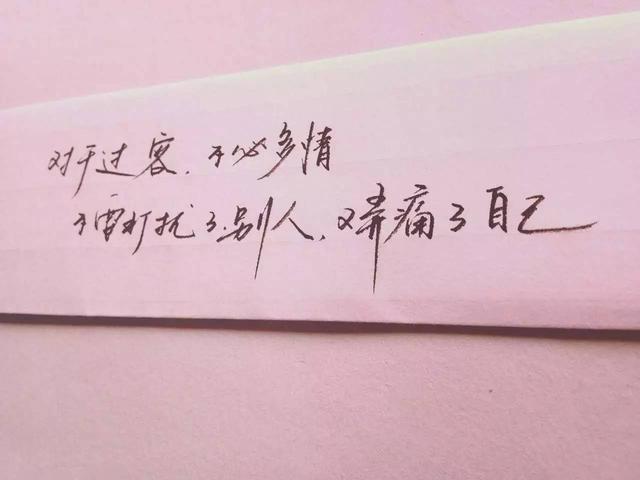 对于过客，不必多情
不要打扰了别人，又弄痛了自己